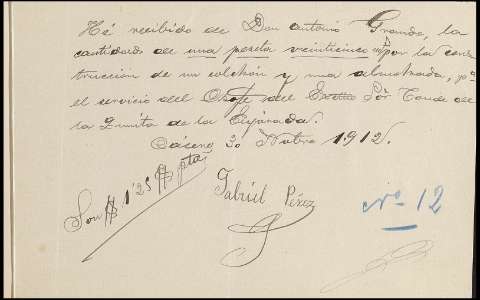 He recibido de Don Antonio Grande, la
cantidad de una peseta veinticinco cts por la cons
trucción de un colchón y una almohada, pa
el servicio del Chofe del Excmo Sor Conde de
la Quinta de la Enjarada.
Cáceres 30 Nobre 1912.
Son $ 1'25 $ ptas
Gabriel Pérez
Nº 12